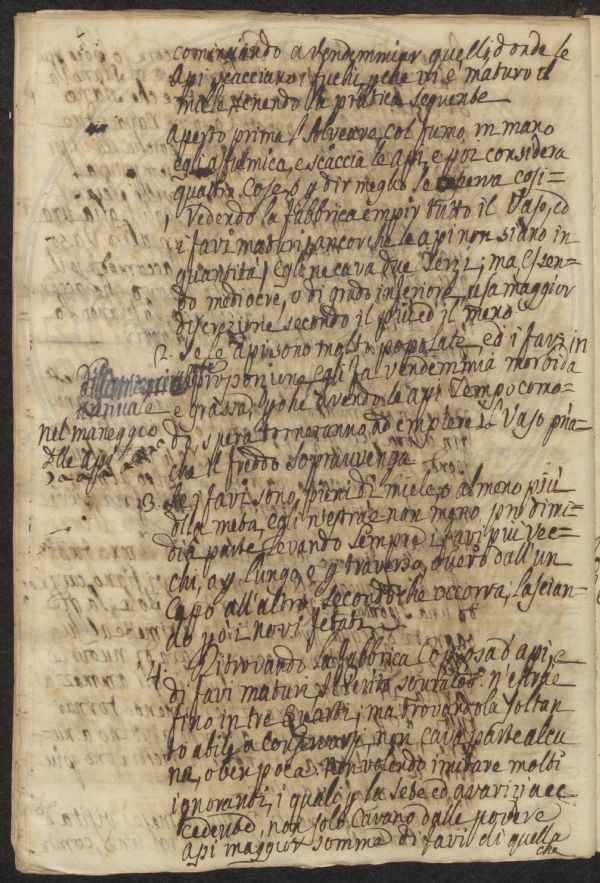 cominciando a vendemmiar quelli, donde le
Api scacciano i fuchi, p che vi è maturo il
miele tenendo la pratica seguente
Aperto prima l'Alveare, col fumo in mano
egli affumica, e scaccia le api, e poi considera
quattro cose, o p dir meglio le osserva così=
1 Vedendo la fabbrica empir tutto il Vaso, ed
i favi maturi, ancorchè le api non siano in
quantità, egli ne cava due Terzi; ma essen=
do mediocre, o di grado inferiore, usa maggior
discrezione secondo il più, ed il meno
2. Se le Api sono molto popolate, ed i favi in
proporzione, egli fa vendemmia morbida
e grassa, p che avendo le api Tempo como=
do, spera torneranno ad empiere il Vaso pria=
che il freddo sopravvenga
nel maneggio
dlle Api
3. Se i favi sono pieni di miele, o almeno più
dlla metà, egli n'estrae non meno p
dia parte levando sempre i favi più vec=
chi, o p lungo, e p traverso, overo dall'un
Capo all'altro, secondo che occorra, lascian=
do p ò i novi fetati
4. Ritrovando la fabbrica Copiosa d'api, e
di favi maturi n'estrae
fino in tre Quarti; ma trovandola soltan=
to abile a conservarsi, non cava parte alcu=
na, o ben poca. Non volendo imitare molti
ignoranti, i quali p la sete ed avarizia ec=
cedendo, non solo cavano dalle povere
api maggior somma di favi di quella
che